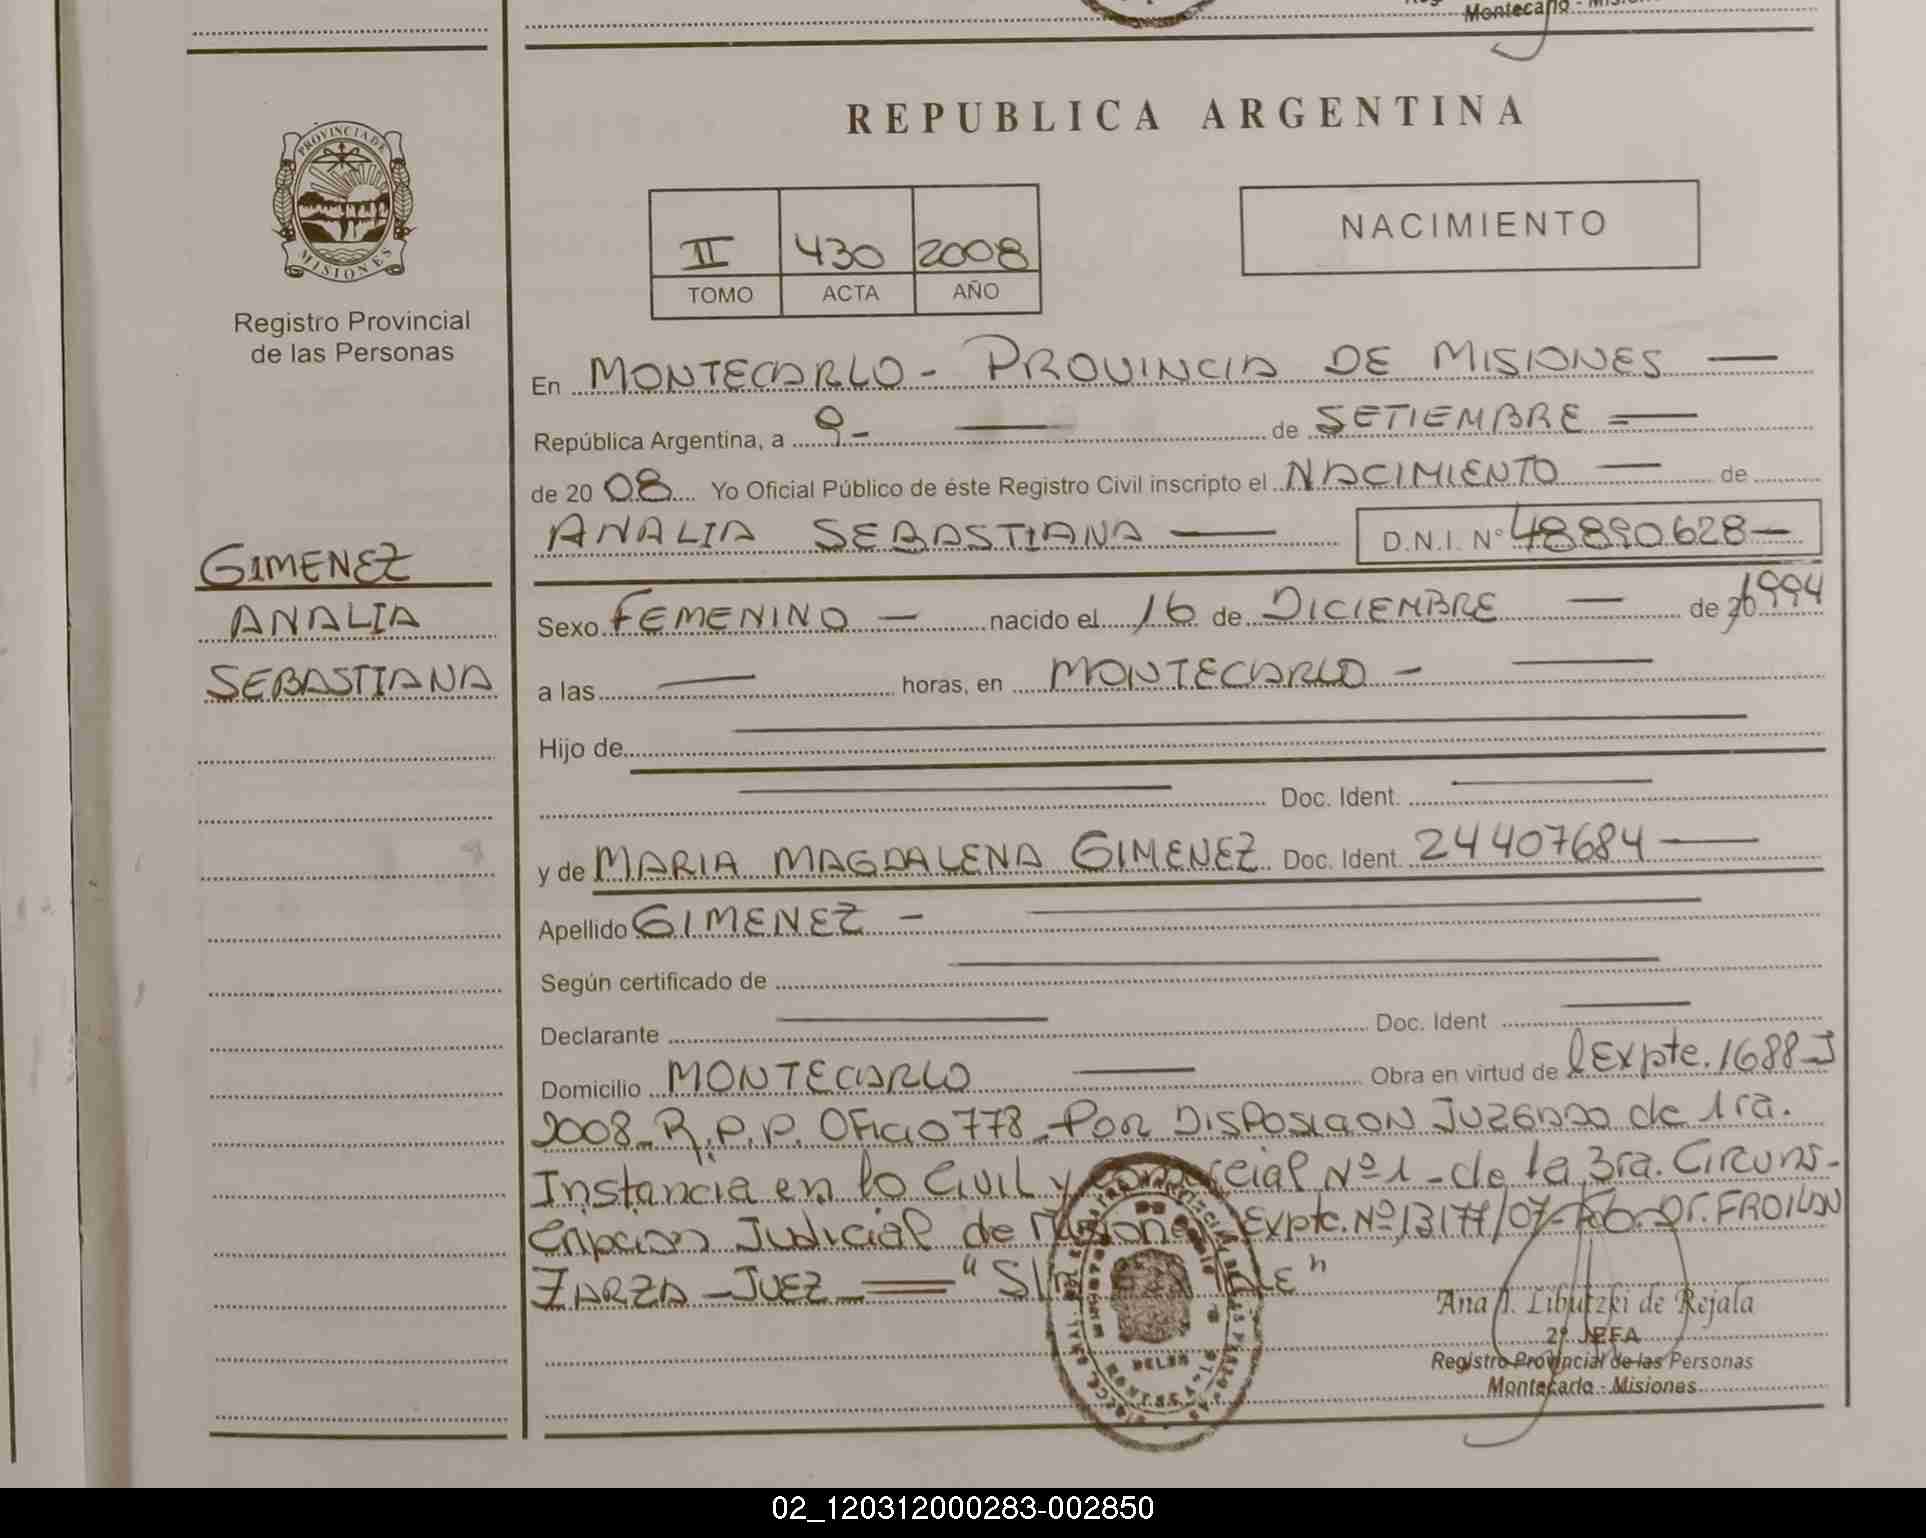 Montecarlo - Misiones
PROVINCIA DE
MISIONES
Registro Provincial
de las Personas
GIMENEZ
ANALIA
SEBASTIANA
REPUBLICA ARGENTINA
II 430 2008
TOMO ACTA AÑO
NACIMIENTO
En MONTECARLO - PROVINCIA DE MISIONES —
República Argentina, a 9 - — de SETIEMBRE —
de 20 08 Yo Oficial Público de éste Registro Civil inscripto el NACIMIENTO — de
ANALIA SEBASTIANA — D.N.I. N° 48890628 —
Sexo FEMENINO — nacido el 16 de DICIEMBRE — de 1994
a las — horas, en MONTECARLO - —
Hijo de —
— Doc. Ident. —
y de MARIA MAGDALENA GIMENEZ Doc. Ident. 24407684 —
Apellido GIMENEZ - —
Según certificado de —
Declarante — Doc. Ident —
Domicilio MONTECARLO — Obra en virtud de lExpte. 1688-J
2008-R.P.P. OFicio 778-Por DISPOSICION JUZGADO de 1ra.
Instancia en lo Civil y Comercial Nº1-de la 3ra. Circuns-
cripcion Judicial de Misiones Expte. Nº 1317/07- Dr. FROILAN
ZARZA - JUEZ — "SIN VALE"
Ana I. Libutzki de Rejala
2º JEFA
Registro Provincial de las Personas
Montecarlo - Misiones
02_120312000283-002850